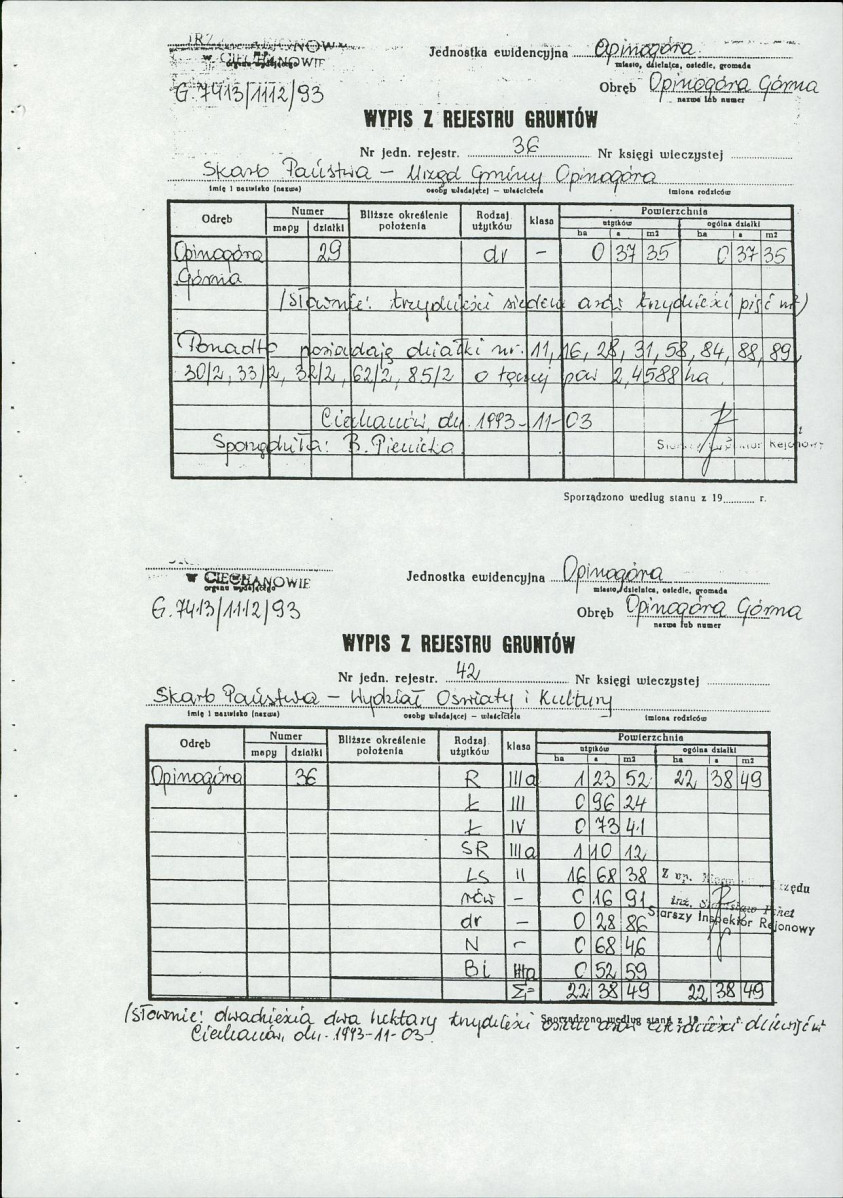 w CIECHANOWIE
organu wydającego
G.7413/1112/93
Jednostka ewidencyjna Opinogóra
miasto, dzielnica, osiedle, gromada
Obręb Opinogóra Górna
nazwa lub numer
WYPIS Z REJESTRU GRUNTÓW
Nr jedn. rejestr. 36 Nr księgi wieczystej
Skarb Państwa – Urząd Gminy Opinogóra
imię i nazwisko (nazwa) osoby władającej – właściciela imiona rodziców
Odręb Numer Bliższe określenie położenia Rodzaj użytków klasa Powierzchnia
mapy działki użytków ogólna działki
ha a m2 ha a m2
Opinogóra Górna 29 dr – 0 37 35 0 37 35
/Słownie: trzydzieści siedem arów trzydzieści pięć m²)
Ponadto posiadają działki nr. 11, 16, 28, 31, 58, 84, 88, 89,
30/2, 33/2, 32/2, 62/2, 85/2 o łącznej pow 2,4588 ha.
Ciechanów, dn. 1993-11-03
Sporządziła: B. Pienicka
Rejonowy
Sporządzono według stanu z 19 r.
w CIECHANOWIE
organu wydającego
G.7413/1112/93
Jednostka ewidencyjna Opinogóra
miasto, dzielnica, osiedle, gromada
Obręb Opinogóra Górna
nazwa lub numer
WYPIS Z REJESTRU GRUNTÓW
Nr jedn. rejestr. 42 Nr księgi wieczystej
Skarb Państwa – Wydział Oświaty i Kultury
imię i nazwisko (nazwa) osoby władającej – właściciela imiona rodziców
Odręb Numer Bliższe określenie położenia Rodzaj użytków klasa Powierzchnia
mapy działki użytków ogólna działki
ha a m2 ha a m2
Opinogóra 36 R IIIa 1 23 52 22 38 49
Ł III 0 96 24
Ł IV 0 73 41
SR IIIa 1 10 12
Ls II 16 68 38
Z up.
rów – 0 16 91
inż.
Starszy Inspektor Rejonowy
dr – 0 28 86
N – 0 68 46
Bi IIIa 0 52 59
Σ= 22 38 49 22 38 49
/Słownie: dwadzieścia dwa hektary trzydzieści osiem arów czterdzieści dziewięć m²
Sporządzono według stanu z 19 r.
Ciechanów, dn. 1993-11-03